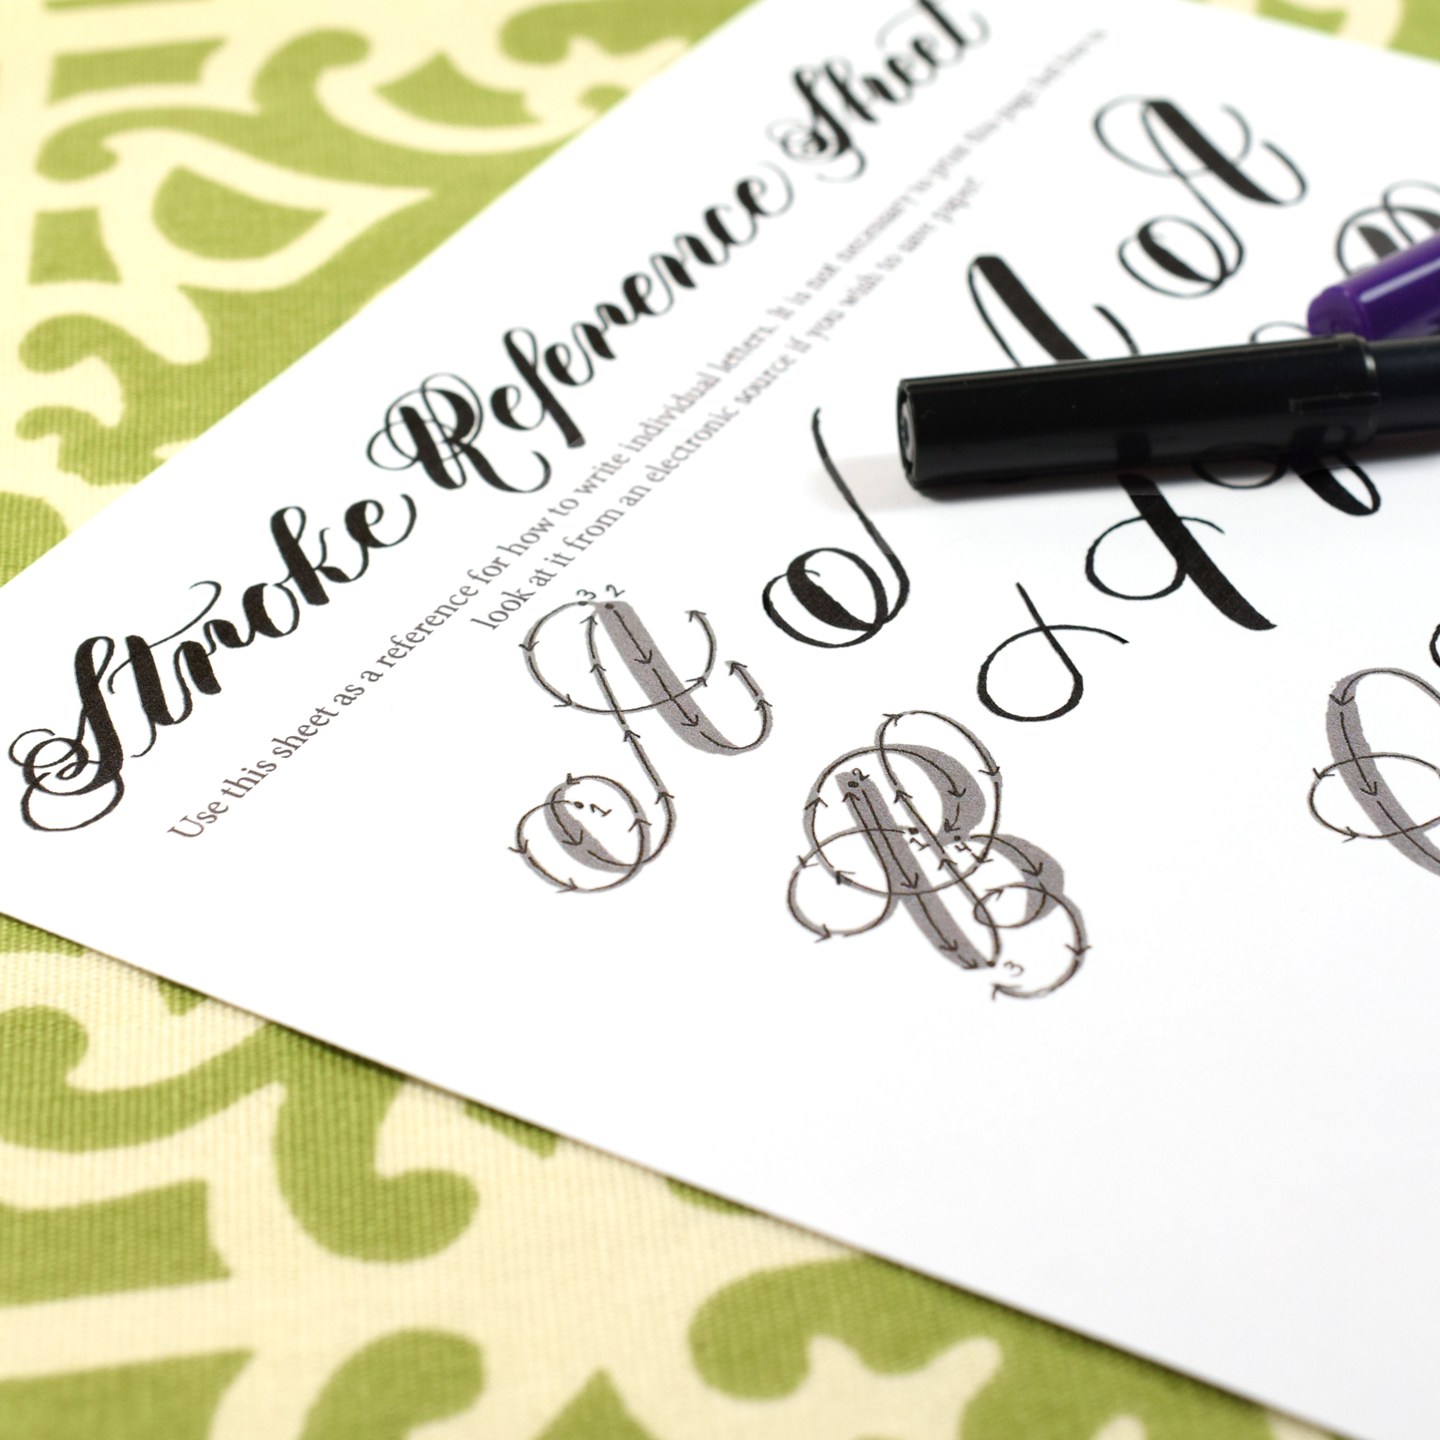 Stroke Reference Sheet
Use this sheet as a reference for how to write individual letters. It is not necessary to print this page, but feel to
look at it from an electronic source if you wish to save paper.
A
3 2
1
2
1 4
3